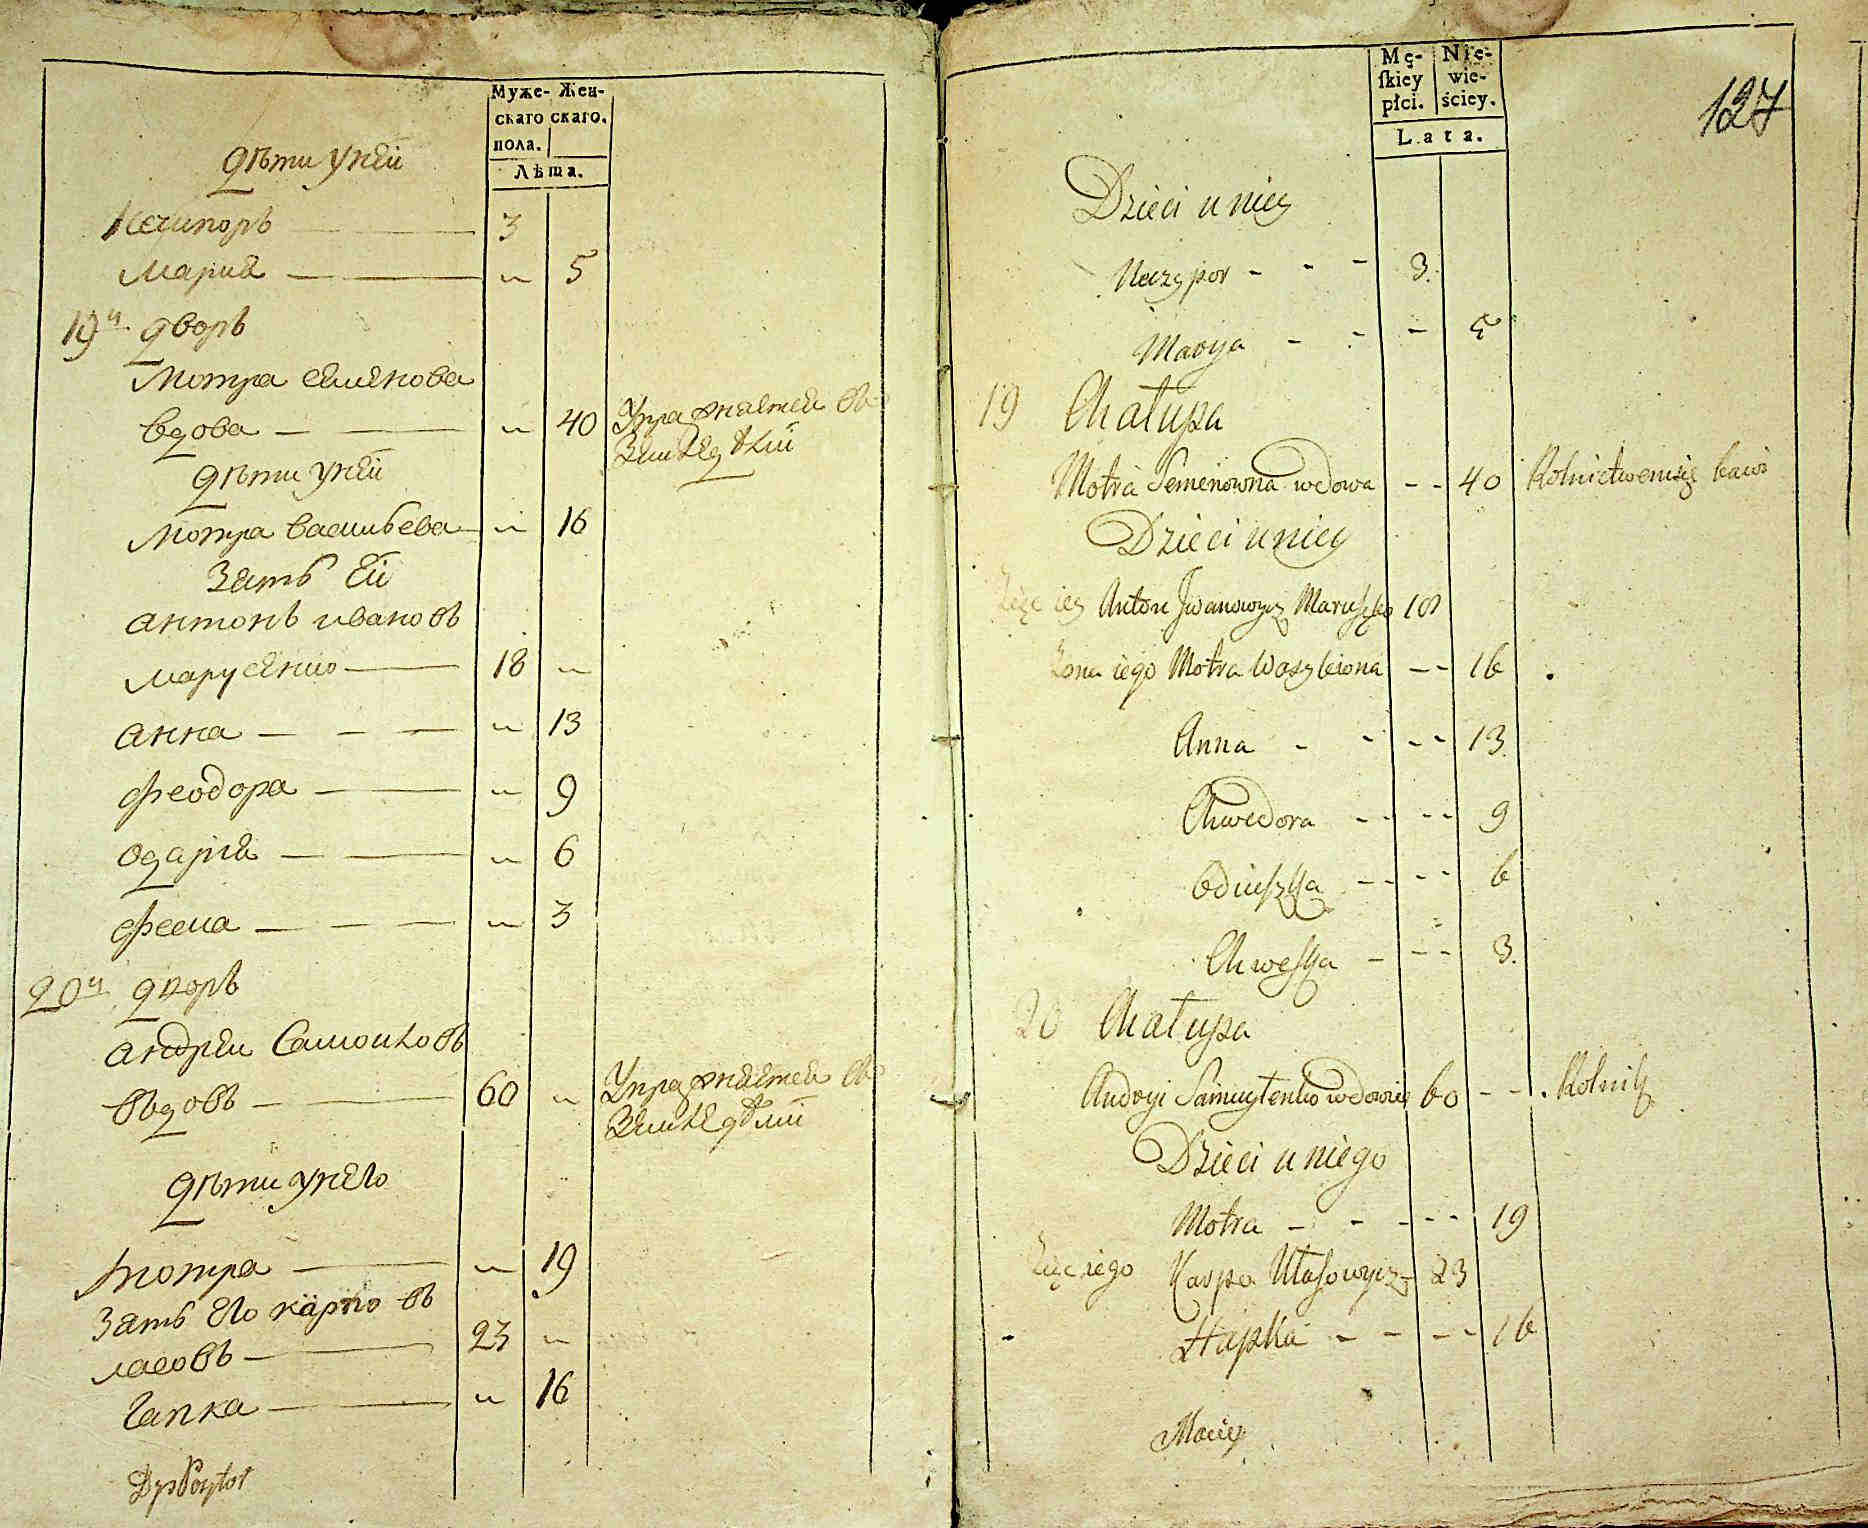 Муже- Жен-
скаго скаго.
пола.
Лѣта.
дѣти унеи
Нечипоръ 3
Мария 5
19й дворъ
Мотра семенова
вдова 40 Упражняется въ
Земледѣлии
дѣти унеи
Мотра василбева 16
Зять еи
антонъ ивановъ
марусенко 18
анна 13
феодора 9
одария 6
фесиа 3
20й дворъ
андреи Самоиловъ
вдовъ 60 Упражняется въ
Земледѣлии
дѣти унего
мотра 19
Зять его карпо въ
ласовъ 23
Гапка 16
127
Mę- Nie-
skiey wie-
płci. ściey.
Lata.
Dzieci u niey
Neczypor 3.
Marya 5
19 Chałupa
Motra Semenowna wdowa 40 Rolnictwem się bawi
Dzieci u niey
Zięć iey Anton Jwanowycz 18
Żona iego Motra Wasylewna 16
Anna 13
Chwedora 9
6
Chweska 3.
20 Chałupa
Andryi Samuylenko wdowiec 60 Rolnik
Dzieci u niego
Motra 19
Zięć iego Karpo Ułasowycz 23
Hapka 16
Maciey